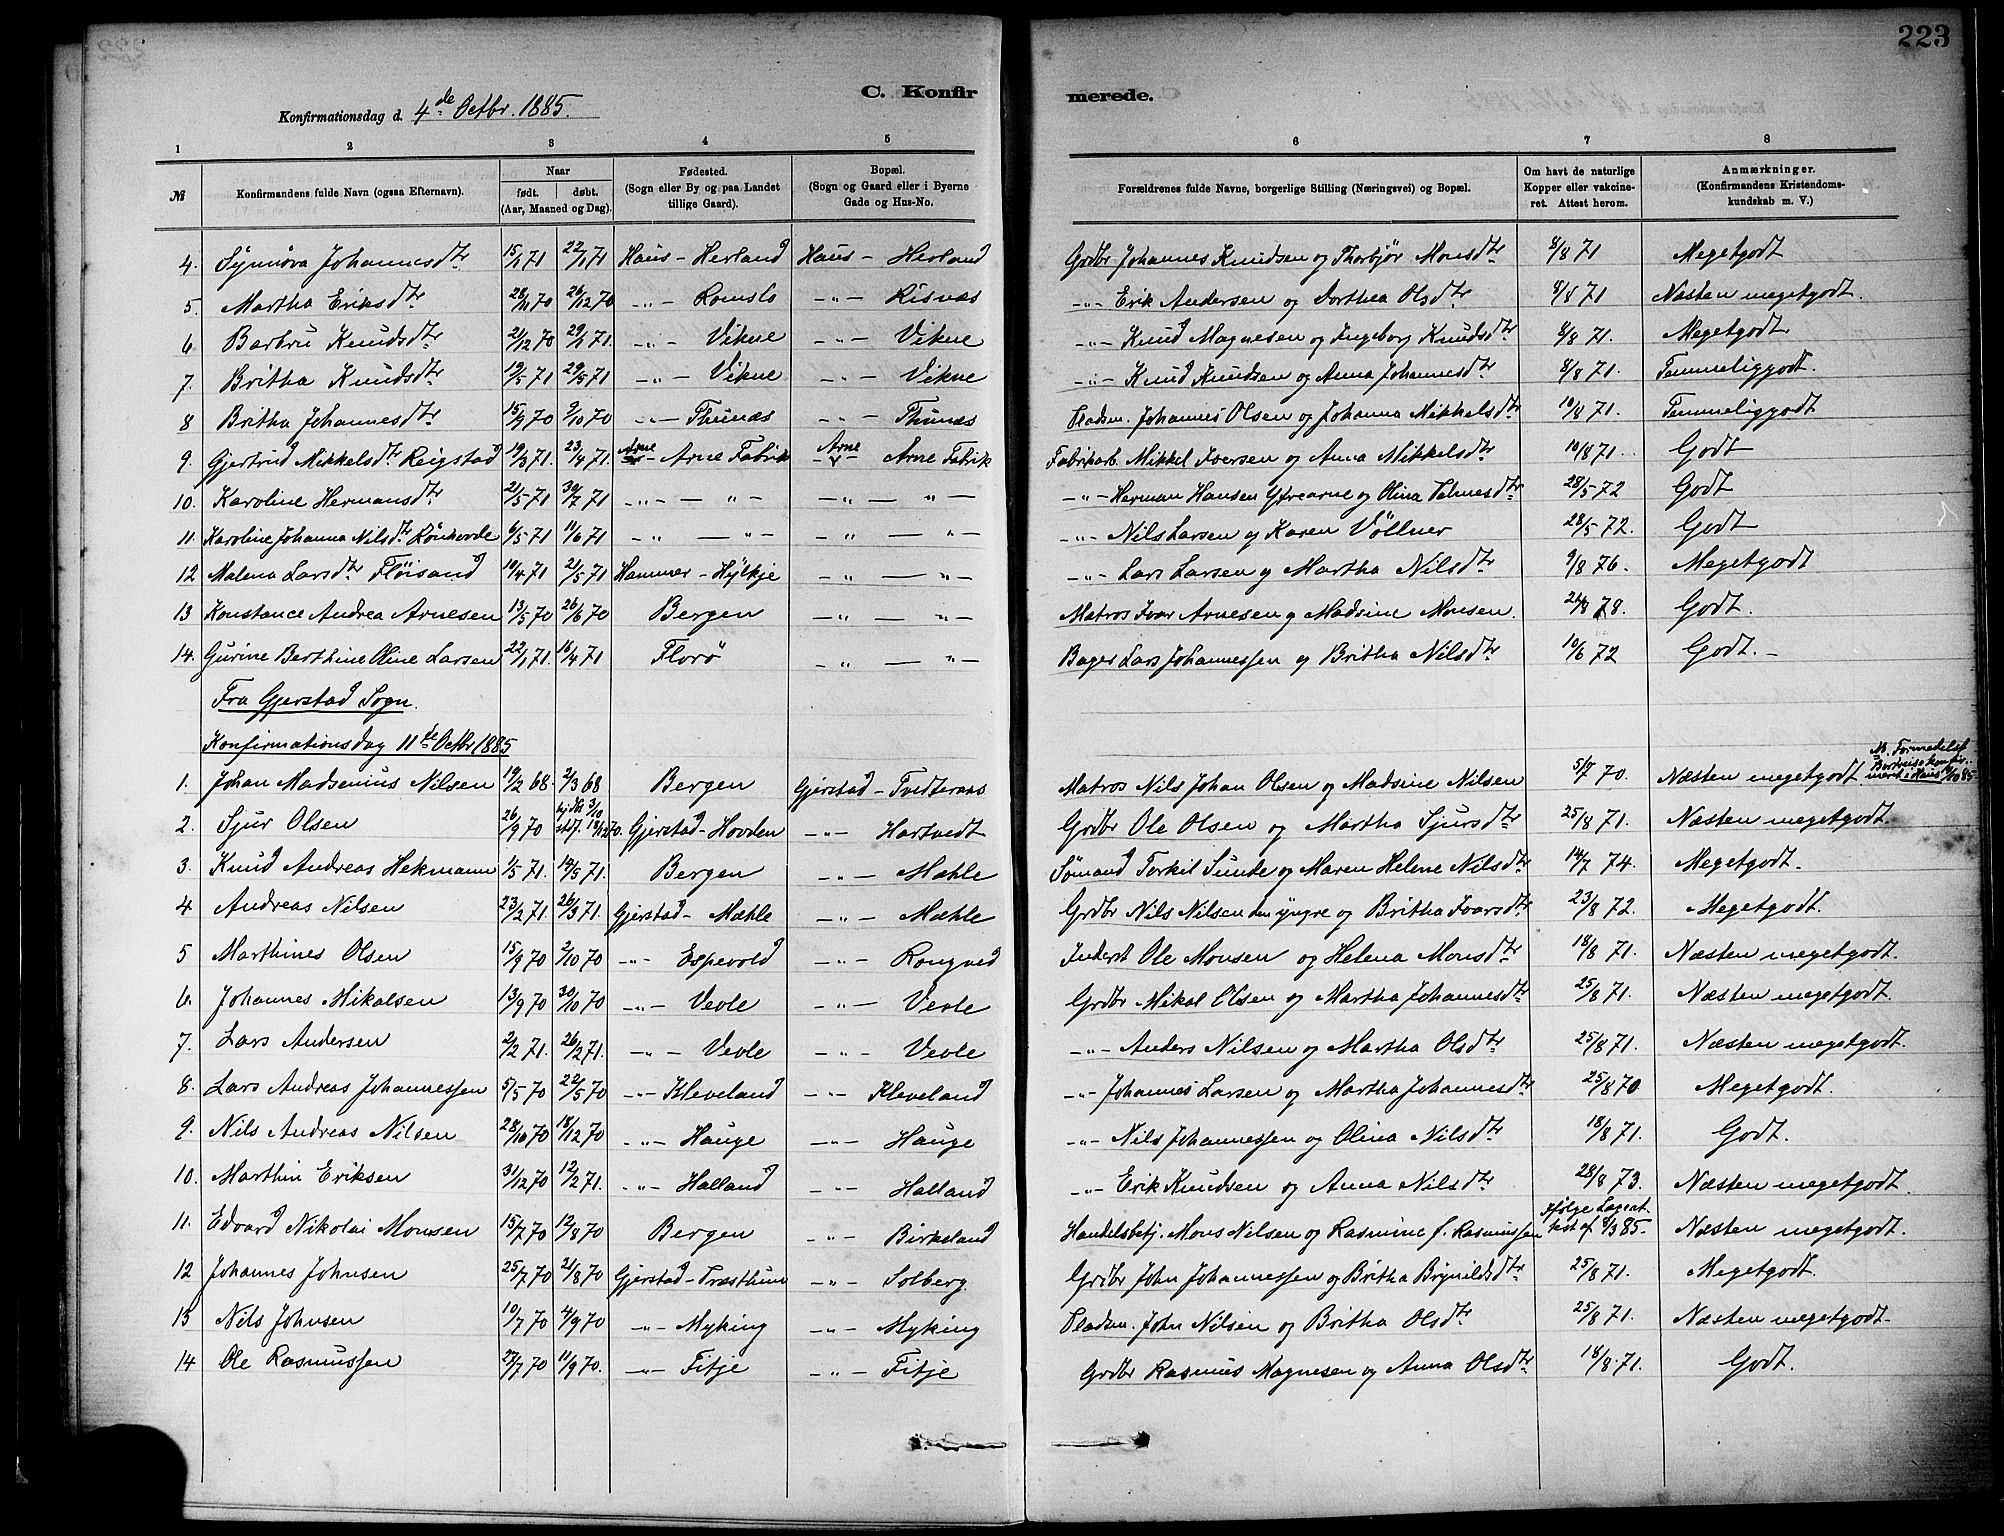 223
C. Konfirmerede.
Konfirmationsdag d. 4de Octbr. 1885.
1 2 3 4 5 6 7 8
№ | Konfirmandens fulde Navn (ogsaa Efternavn). | Naar født. døbt. (Aar, Maaned og Dag). | Fødested. (Sogn eller By og paa Landet tillige Gaard). | Bopæl. (Sogn og Gaard eller i Byerne Gade og Hus-No. | Forældrenes fulde Navne, borgerlige Stilling (Næringsvei) og Bopæl. | Om havt de naturlige Kopper eller vakcineret. Attest herom. | Anmærkninger. (Konfirmandens Kristendomskundskab m. V.)
4. Synnøva Johannesdtr 15/1 71 22/1 71 Haus - Herland Haus - Herland Grdbr Johannes Knudsen og Thorbjør Monsdtr 8/8 71 Megetgodt
5. Martha Eriksdtr 28/11 70 26/12 70 -"- Romslo -"- Risnæs -"- Erik Andersen og Dorthea Olsdtr 8/8 71 Næsten megetgodt.
6 Barbru Knudsdtr 21/12 70 29/1 71. -"- Vikne -"- Vikne -"- Knud Magnesen og Ingeborg Knudsdtr 8/8 71. Megetgodt
7. Britha Knudsdtr 19/5 71 29/5 71 -"- Vikne -"- Vikne -"- Knud Knudsen og Anna Johannesdtr 8/8 71. Temmeliggodt.
8 Britha Johannesdtr 15/9 70 9/10 70 -"- Thunæs -"- Thunæs Pladsm. Johannes Olsen og Johanna Mikkelsdtr 10/8 71. Temmeliggodt
9. Gjertrud Mikkelsdtr Reigstad 19/3 71. 23/4 71. Arne - Arne Fabrik Arne - Arne Fabrik Fabrikarb. Mikkel Iversen og Anna Mikkelsdtr 10/8 71. Godt
10. Karoline Hermansdtr 21/5 71 30/7 71 -"- - "- -"- - "- -"- Herman Hansen Øvrearne og Olina Telnesdtr 28/5 72 Godt
11. Karoline Johanna Nilsdtr Rønhovde 6/5 71 11/6 71 -"- - "- -"- - "- -"- Nils Larsen og Karen Vøllner 28/5 72. Godt
12 Malena Larsdtr Fløisand 10/4 71 21/5 71 Hammer - Hylkje -"- - "- -"- Lars Larsen og Martha Nilsdtr 9/8 76. Megetgodt
13 Konstance Andrea Arnesen 13/5 70 26/6 70 Bergen -"- - "- Matros Ivar Arnesen og Madsine Monsen. 21/8 78. Godt.
14. Gurine Berthine Oline Larsen 22/1 71. 16/4 71 Florø -"- - "- Bager Lars Johannessen og Britha Nilsdtr 10/6 72 Godt. -
Fra Gjerstad Sogn.
Konfirmationsdag 11te Octbr 1885
1. Johan Madsenius Nilsen 19/2 68. 2/3 68 Bergen Gjerstad - Tvedteraas Matros Nils Johan Olsen og Madsine Nilsen 5/7 70. Næsten megetgodt. Nb. Formedelst Bortreise konfirmeret i Haus 4/10 85
2. Sjur Olsen 26/9 70 hjdbt 3/10 stdf. 18/12 70. Gjerstad - Hovden -"- Hartvedt Grdbr Ole Olsen og Martha Sjursdtr 25/8 71. Næsten megetgodt.
3. Knud Andreas Hekmann 1/5 71. 19/5 71. Bergen -"- Mæhle Sømand Torkil Sunde og Maren Helene Nilsdtr 14/7 74. Megetgodt.
4 Andreas Nilsen 23/2 71. 26/3 71. Gjerstad - Mæhle -"- Mæhle Grdbr Nils Nilsen den yngre og Britha Ivarsdtr 23/8 72. Megetgodt.
5 Marthines Olsen 15/9 70 2/10 70 -"- Espevold -"- Rongved Inderst Ole Monsen og Helena Monsdtr 18/8 71. Næsten megetgodt.
6. Johannes Mikalsen 13/9 70 30/10 70 -"- Vevle -"- Vevle Grdbr Mikal Olsen og Martha Johannesdtr 25/8 71. Næsten megetgodt.
7. Lars Andersen 2/2 71. 26/2 71. -"- Vevle -"- Vevle -"- Anders Nilsen og Martha Olsdtr 25/8 71. Næsten megetgodt.
8. Lars Andreas Johannessen 5/5 70 22/5 70 -"- Kleveland -"- Kleveland -"- Johannes Larsen og Martha Johannesdtr 25/8 70 Megetgodt.
9. Nils Andreas Nilsen 28/10 70 18/12 70 -"- Hauge -"- Hauge -"- Nils Johannessen og Olina Nilsdtr 18/8 71. Godt.
10. Marthin Eriksen 31/12 70 12/2 71. -"- Halland -"- Halland -"- Erik Knudsen og Anna Nilsdtr 28/8 73. Næsten megetgodt.
11. Edvard Nikolai Monsen 15/7 70 12/8 70 Bergen -"- Birkeland Handelsbetj. Mons Nilsen og Rasmine f. Rasmussen Ifølge Lægeattest af 9/3 85. Næsten megetgodt.
12 Johannes Johnsen 25/7 70 21/8 70 Gjerstad - Træsthun -"- Solberg. Grdbr John Johannessen og Britha Brynildsdtr 25/8 71. Megetgodt.
13 Nils Johnsen 10/7 70 4/9 70 -"- Myking -"- Myking Pladsm. John Nilsen og Britha Olsdtr 25/8 71. Næsten megetgodt.
14 Ole Rasmussen 27/7 70 11/9 70. -"- Fitje -"- Fitje Grdbr Rasmus Magnesen og Anna Olsdtr 18/8 71. Godt.